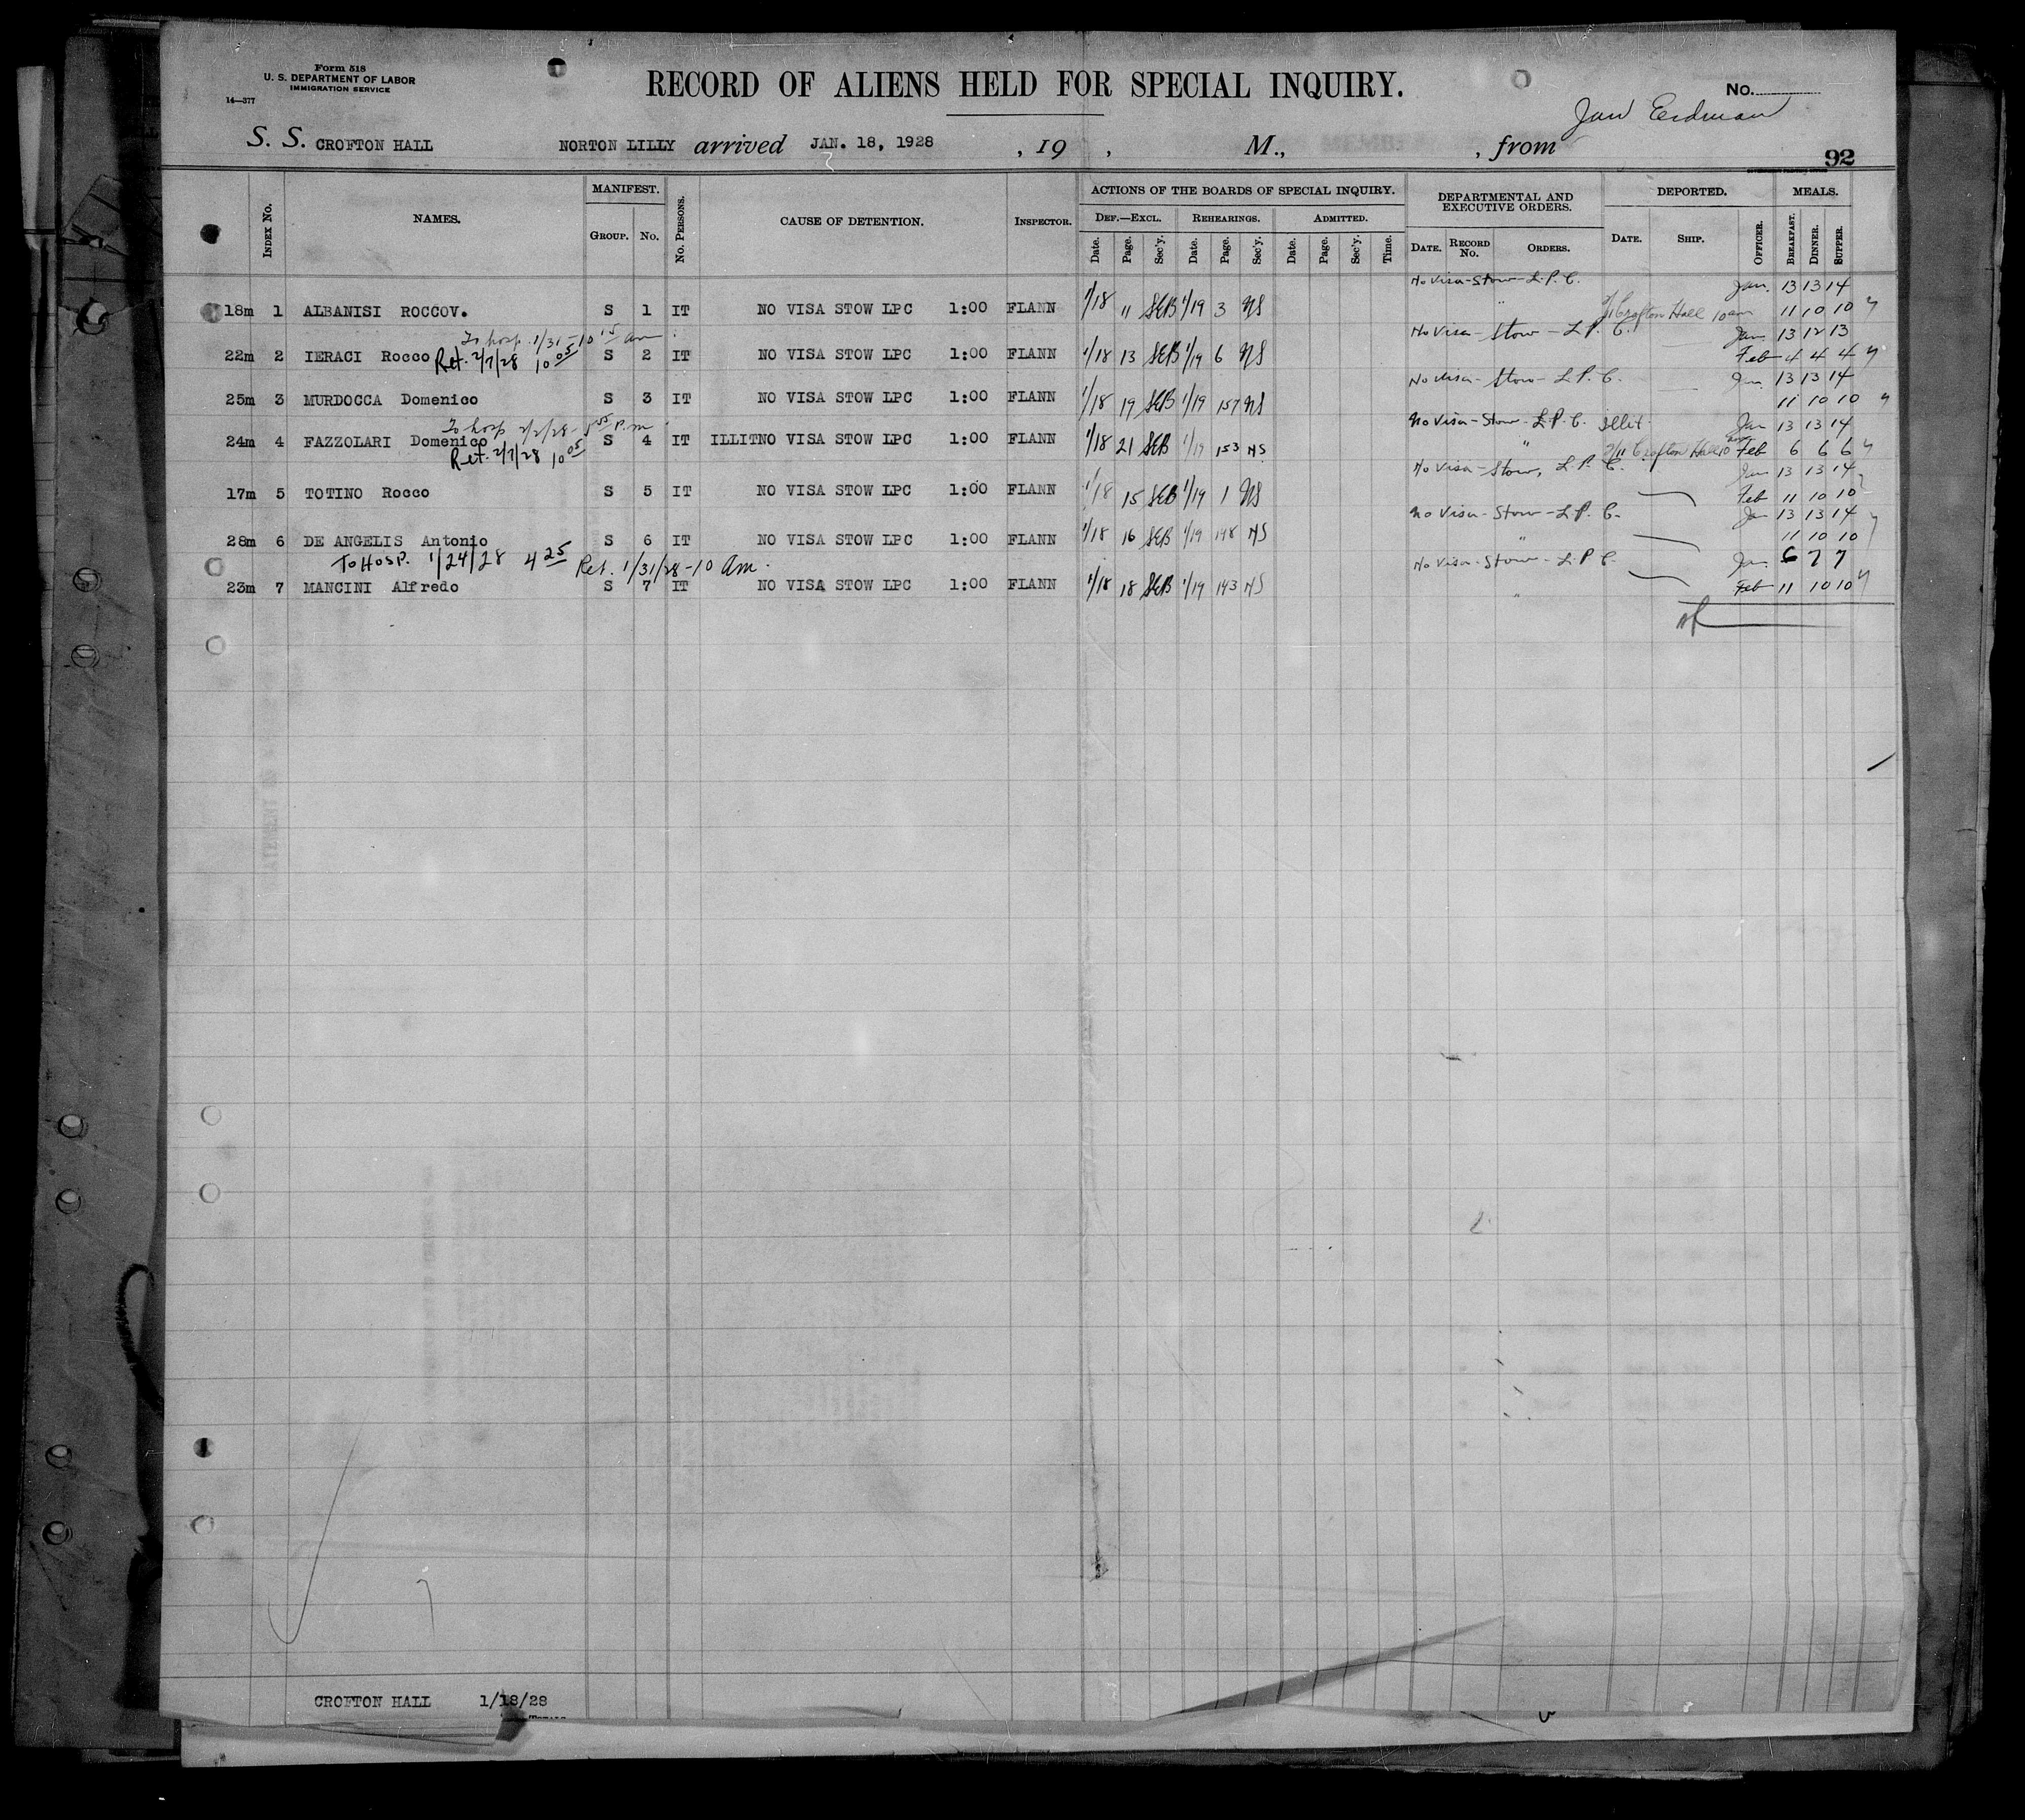 Form 518
U. S. DEPARTMENT OF LABOR
IMMIGRATION SERVICE
14—377
RECORD OF ALIENS HELD FOR SPECIAL INQUIRY.
No.
Jan Erdman
S. S. CROFTON HALL NORTON LILLY arrived JAN. 18, 1928 , 19 , M., , from
92
INDEX No. NAMES. MANIFEST. GROUP. No. No. PERSONS. CAUSE OF DETENTION. INSPECTOR. ACTIONS OF THE BOARDS OF SPECIAL INQUIRY. DEF.—EXCL. Date. Page. Sec'y. REHEARINGS. Date. Page. Sec'y. ADMITTED. Date. Page. Sec'y. Time. DEPARTMENTAL AND EXECUTIVE ORDERS. DATE. RECORD No. ORDERS. DEPORTED. DATE. SHIP. OFFICER. MEALS. BREAKFAST. DINNER. SUPPER.
No Visa-Stow-L.P.C. Jan. 13 13 14
18m 1 ALBANISI ROCCOV. S 1 IT NO VISA STOW LPC 1:00 FLANN 1/18 11 SEB 1/19 3 NS " Crofton Hall 10 am 11 10 10
To hosp. 1/31-10 15 am No Visa - Stow - L.P.C. Jan 13 12 13
22m 2 IERACI Rocco S 2 IT NO VISA STOW LPC 1:00 FLANN 1/18 13 SEB 1/19 6 NS Feb 4 4 4
Ret. 2/7/28 10 05
No Visa - Stow - L.P.C. Jan 13 13 14
25m 3 MURDOCCA Domenico S 3 IT NO VISA STOW LPC 1:00 FLANN 1/18 19 SEB 1/19 157 NS 11 10 10
To hosp 2/2/28 P.m No Visa-Stow-L.P.C. illit. Jan 13 13 14
24m 4 FAZZOLARI Domenico S 4 IT ILLITNO VISA STOW LPC 1:00 FLANN 1/18 21 SEB 1/19 153 NS " 2/11 Crofton Hall 10 am Feb 6 6 6
Ret. 2/7/28 10 05
No Visa-Stow, L.P.C. Jan 13 13 14
17m 5 TOTINO Rocco S 5 IT NO VISA STOW LPC 1:00 FLANN 1/18 15 SEB 1/19 1 NS Feb 11 10 10
No Visa-Stow-L.P.C. Jan 13 13 14
28m 6 DE ANGELIS Antonio S 6 IT NO VISA STOW LPC 1:00 FLANN 1/18 16 SEB 1/19 148 NS " 11 10 10
To Hosp. 1/24/28 4 25 Ret. 1/31/28-10 am. No Visa-Stow-L.P.C. Jan 6 7 7
23m 7 MANCINI Alfredo S 7 IT NO VISA STOW LPC 1:00 FLANN 1/18 18 SEB 1/19 143 NS " Feb 11 10 10
CROFTON HALL 1/18/28